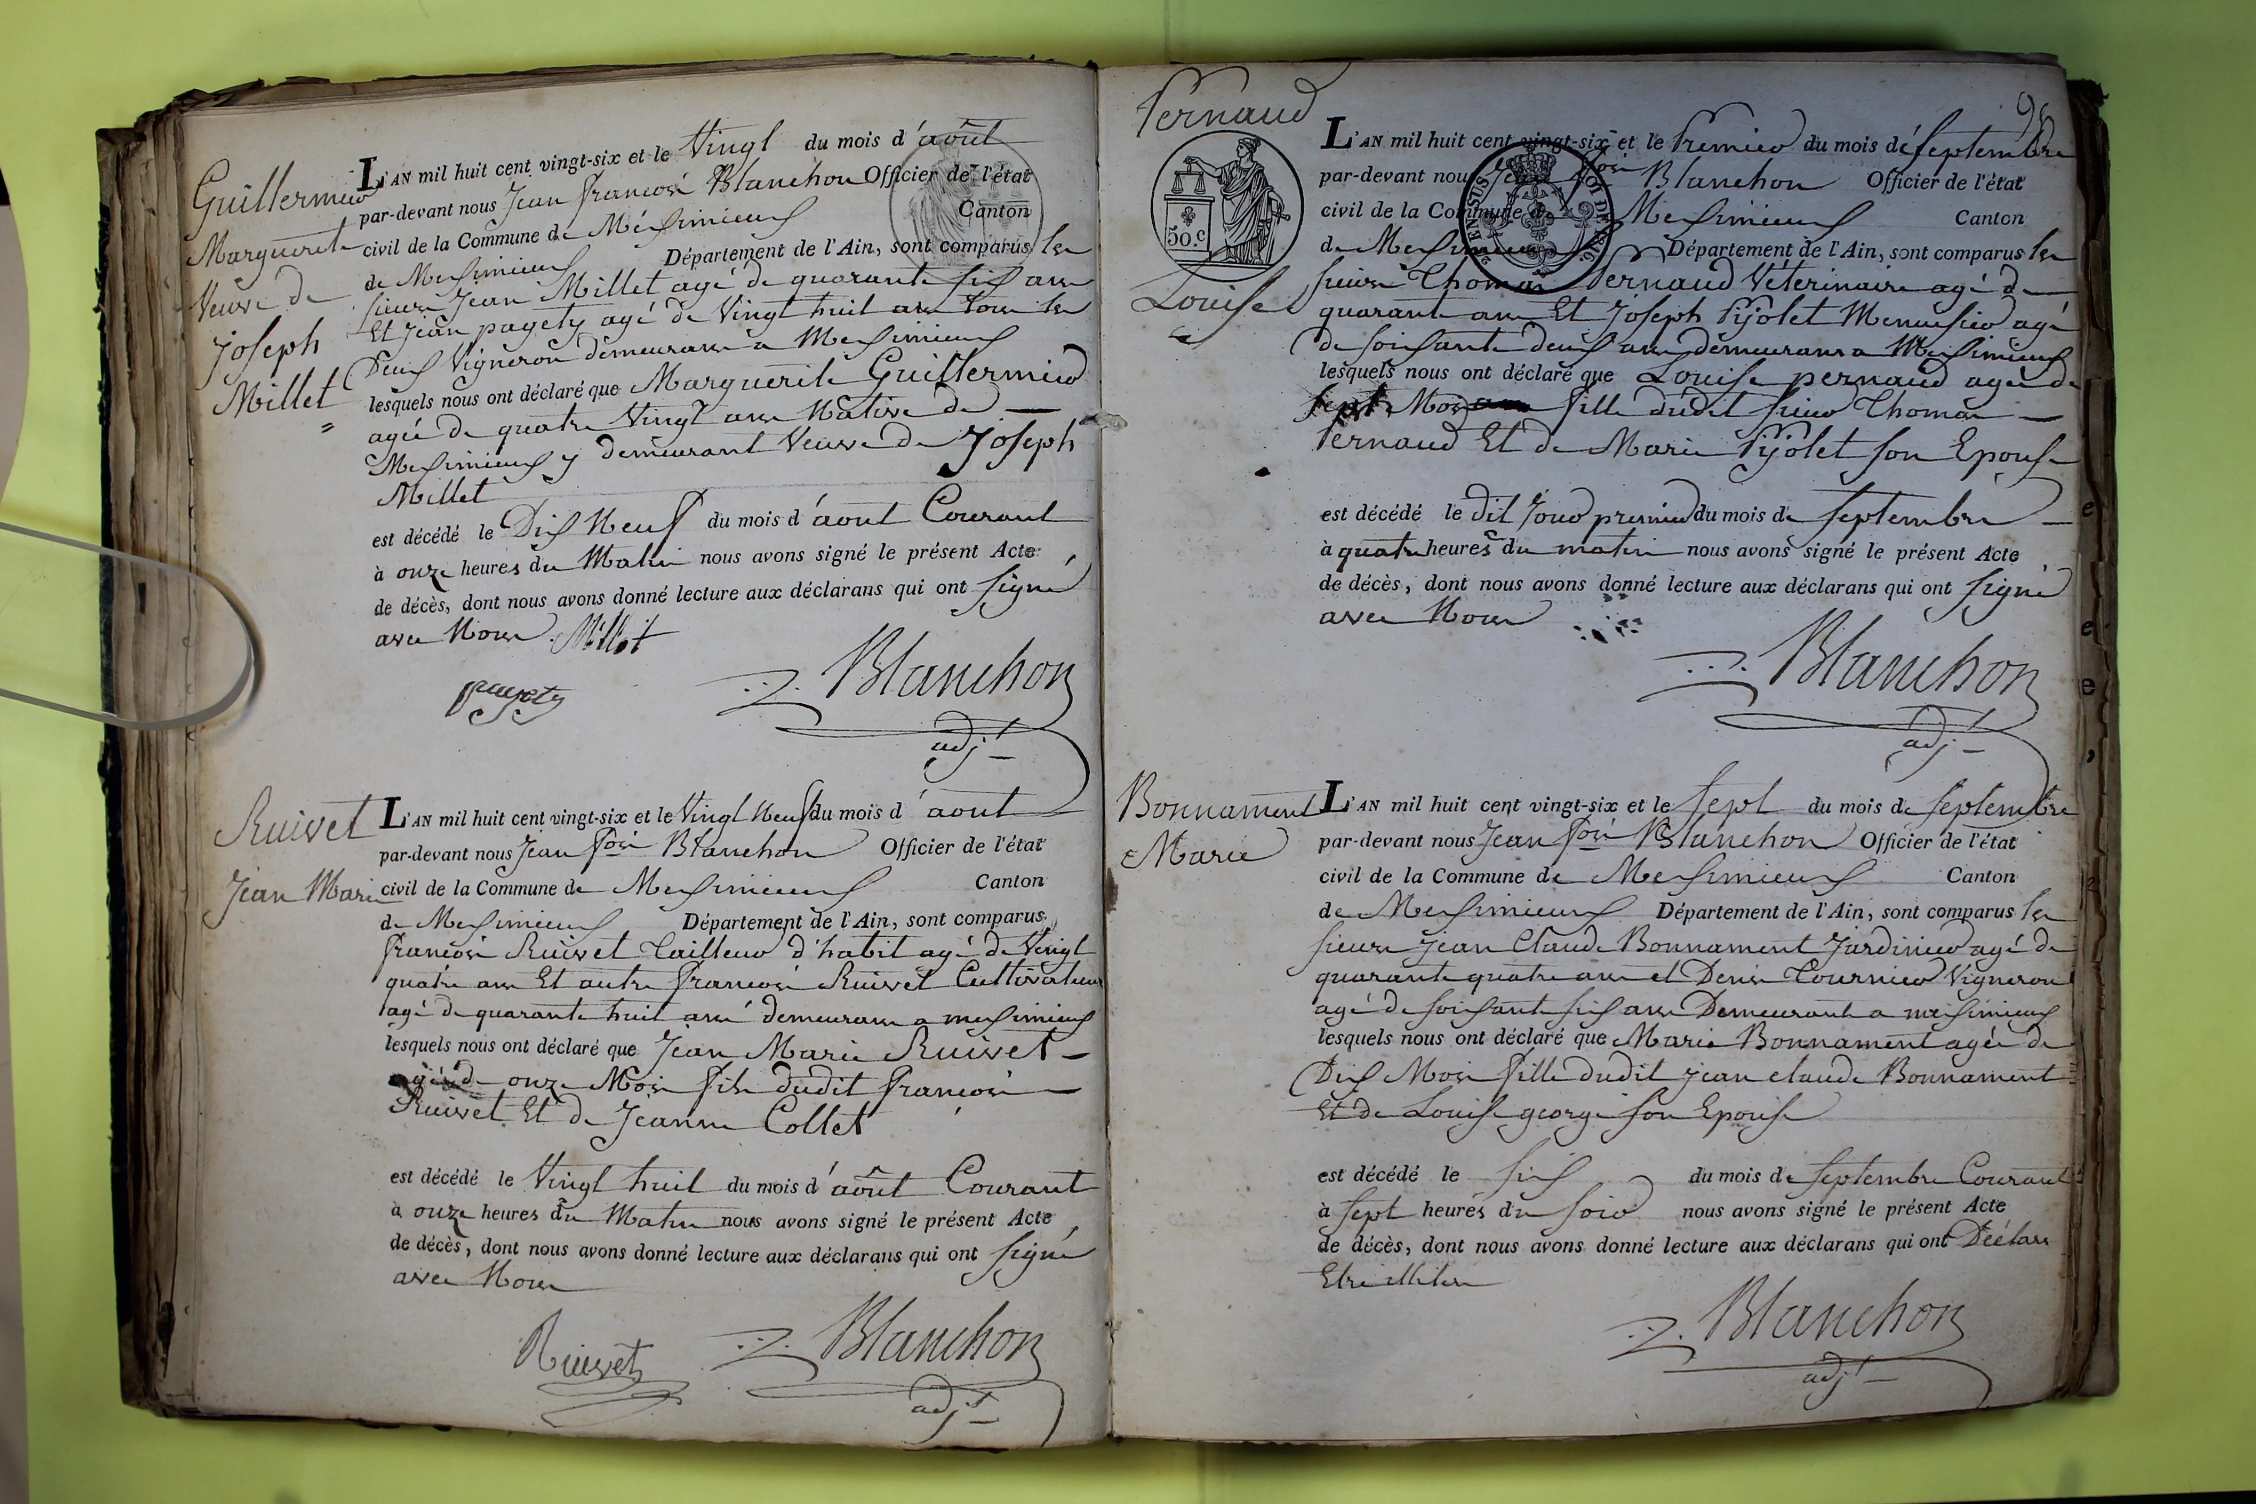 Guillermier
Marguerite
Veuve de
Joseph
Millet
L'AN mil huit cent vingt-six et le Vingt du mois d'août
par-devant nous Jean françois Blanchon Officier de l'état
civil de la Commune de Méximieux Canton
de Meximieux Département de l'Ain, sont comparus les
sieurs Jean Millet agé de quarante six ans
Et Jean pagety agé de Vingt huit ans tous les
Deux Vigneron demeurans a Meximieux
lesquels nous ont déclaré que Marguerite Guillermier
agée de quatre Vingt ans Native de
Meximieux y demeurant Veuve de Joseph
Millet
est décédé le Dix Neuf du mois d'aout Courant
à onze heures du Matin nous avons signé le présent Acte
de décès, dont nous avons donné lecture aux déclarans qui ont signé
avec Nous Millet
pagety
Blanchon
adj.t
Ruivet
Jean Marie
L'AN mil huit cent vingt-six et le Vingt Neuf du mois d'aout
par-devant nous Jean fois Blanchon Officier de l'état
civil de la Commune de Meximieux Canton
de Meximieux Département de l'Ain, sont comparus
françois Ruivet Tailleur d'habit agé de Vingt
quatre ans Et autre françois Ruivet Cultivateur
agé de quarante huit ans demeurans a meximieux
lesquels nous ont déclaré que Jean Marie Ruivet
agé de onze Mois fils dudit françois
Ruivet Et de Jeanne Collet
est décédé le Vingt huit du mois d'août Courant
à onze heures du Matin nous avons signé le présent Acte
de décès, dont nous avons donné lecture aux déclarans qui ont signé
avec Nous
Ruivet
Blanchon
adj.t
Pernaud
Louise
50.c
L'AN mil huit cent vingt-six et le Premier du mois de Septembre
par-devant nous Jean fois Blanchon Officier de l'état
civil de la Commune de Meximieux Canton
de Meximieux Département de l'Ain, sont comparus les
sieurs Thomas Pernaud Véterinaire agé de
quarante ans Et Joseph Pijolet Menuisier agé
de soixante deux ans demeurans a Meximieux
lesquels nous ont déclaré que Louise pernaud agée de
sept Mois ans fille dudit sieur Thomas
Pernaud Et de Marie Pijolet son Epouse
est décédé le dit Jour premier du mois de septembre
à quatre heures du matin nous avons signé le présent Acte
de décès, dont nous avons donné lecture aux déclarans qui ont signé
avec Nous
Blanchon
adj.t
Bonnament
Marie
L'AN mil huit cent vingt-six et le sept du mois de septembre
par-devant nous Jean fois Blanchon Officier de l'état
civil de la Commune de Meximieux Canton
de Meximieux Département de l'Ain, sont comparus les
sieurs Jean Claude Bonnament Jardinier agé de
quarante quatre ans et Denis Tournier Vigneron
agé de soixante six ans Demeurant a meximieux
lesquels nous ont déclaré que Marie Bonnament agée de
Dix Mois fille dudit jean claude Bonnament
Et de Louise george son Epouse
est décédé le six du mois de septembre Courant
à sept heures du soir nous avons signé le présent Acte
de décès, dont nous avons donné lecture aux déclarans qui ont Déclaré
Etre illiteré
Blanchon
adj.t